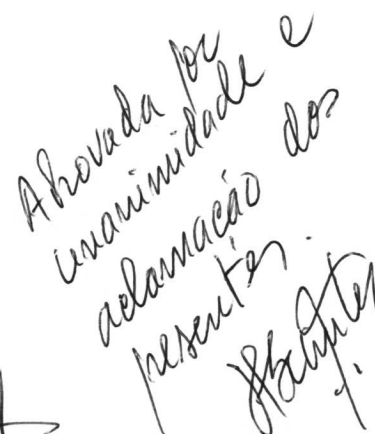 Aprovada por
unanimidade e
aclamação dos
presentes.